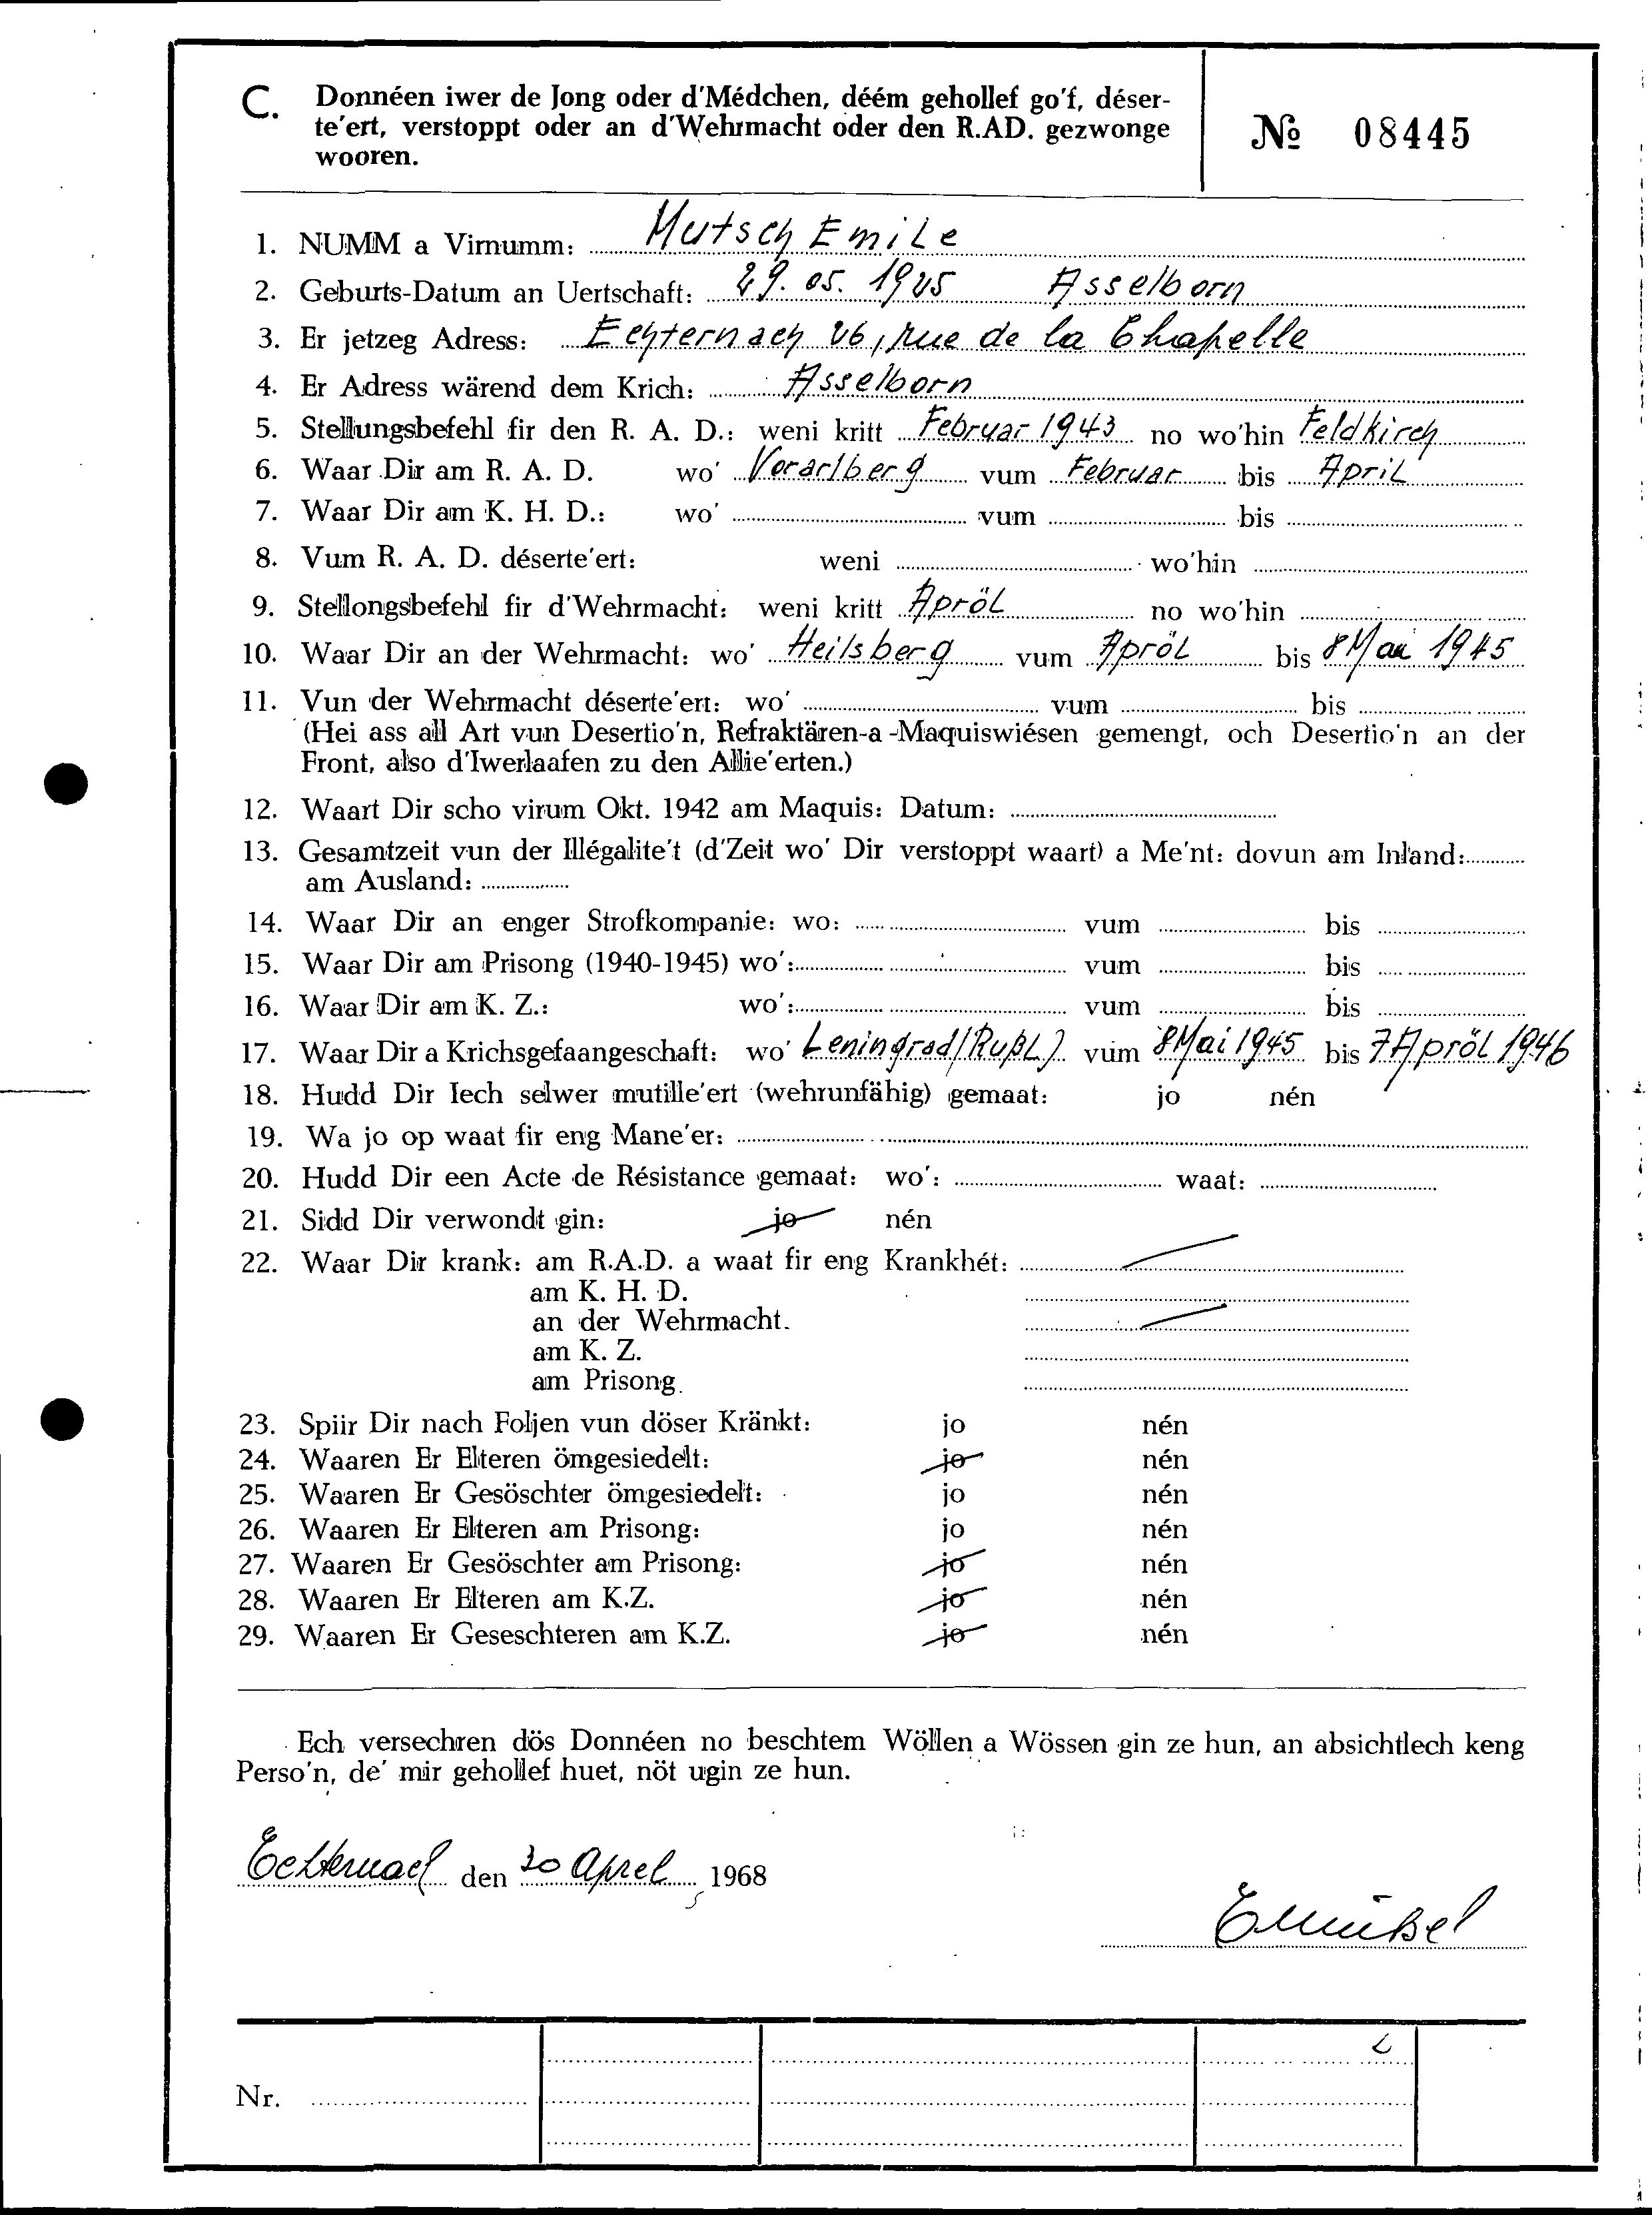 C. Donnéen iwer de Jong oder d'Médchen, déém gehollef go'f, déser-
te'ert, verstoppt oder an d'Wehrmacht oder den R.AD. gezwonge
wooren.
№ 08445
1. NUMM a Virnumm: Mutsch Emile
2. Geburts-Datum an Uertschaft: 29. 05. 1925 Asselborn
3. Er jetzeg Adress: Echternach 26, rue de la Chapelle
4. Er Adress wärend dem Krich: Asselborn
5. Stellungsbefehl fir den R. A. D.: weni kritt Februar 1943 no wo'hin Feldkirch
6. Waar Dir am R. A. D. wo' Vorarlberg vum Februar bis April
7. Waar Dir am K. H. D.: wo' vum bis
8. Vum R. A. D. déserte'ert: weni wo'hin
9. Stellongsbefehl fir d'Wehrmacht: weni kritt Apröl no wo'hin
10. Waar Dir an der Wehrmacht: wo' Heilsberg vum Apröl bis 8 Mai 1945
11. Vun der Wehrmacht déserte'ert: wo' vum bis
(Hei ass all Art vun Desertio'n, Refraktären-a-Maquiswiésen gemengt, och Desertio'n an der
Front, also d'Iwerlaafen zu den Allie'erten.)
12. Waart Dir scho virum Okt. 1942 am Maquis: Datum:
13. Gesamtzeit vun der Illégalite't (d'Zeit wo' Dir verstoppt waart) a Me'nt: dovun am Inland:
am Ausland:
14. Waar Dir an enger Strofkompanie: wo: vum bis
15. Waar Dir am Prisong (1940-1945) wo': vum bis
16. Waar Dir am K. Z.: wo': vum bis
17. Waar Dir a Krichsgefaangeschaft: wo' Leningrad (Rußl.) vum 8 Mai 1945 bis 7 Apröl 1946
18. Hudd Dir Iech selwer mutille'ert (wehrunfähig) gemaat: jo nén
19. Wa jo op waat fir eng Mane'er:
20. Hudd Dir een Acte de Résistance gemaat: wo': waat:
21. Sidd Dir verwondt gin: jo nén
22. Waar Dir krank: am R.A.D. a waat fir eng Krankhét:
am K. H. D.
an der Wehrmacht.
am K. Z.
am Prisong.
23. Spiir Dir nach Foljen vun döser Kränkt: jo nén
24. Waaren Er Elteren ömgesiedelt: jo nén
25. Waaren Er Gesöschter ömgesiedelt: jo nén
26. Waaren Er Elteren am Prisong: jo nén
27. Waaren Er Gesöschter am Prisong: jo nén
28. Waaren Er Elteren am K.Z. jo nén
29. Waaren Er Geseschteren am K.Z. jo nén
Ech versechren dös Donnéen no beschtem Wöllen a Wössen gin ze hun, an absichtlech keng
Perso'n, de' mir gehollef huet, nöt ugin ze hun.
Echternach den 20 April 1968
Nr.